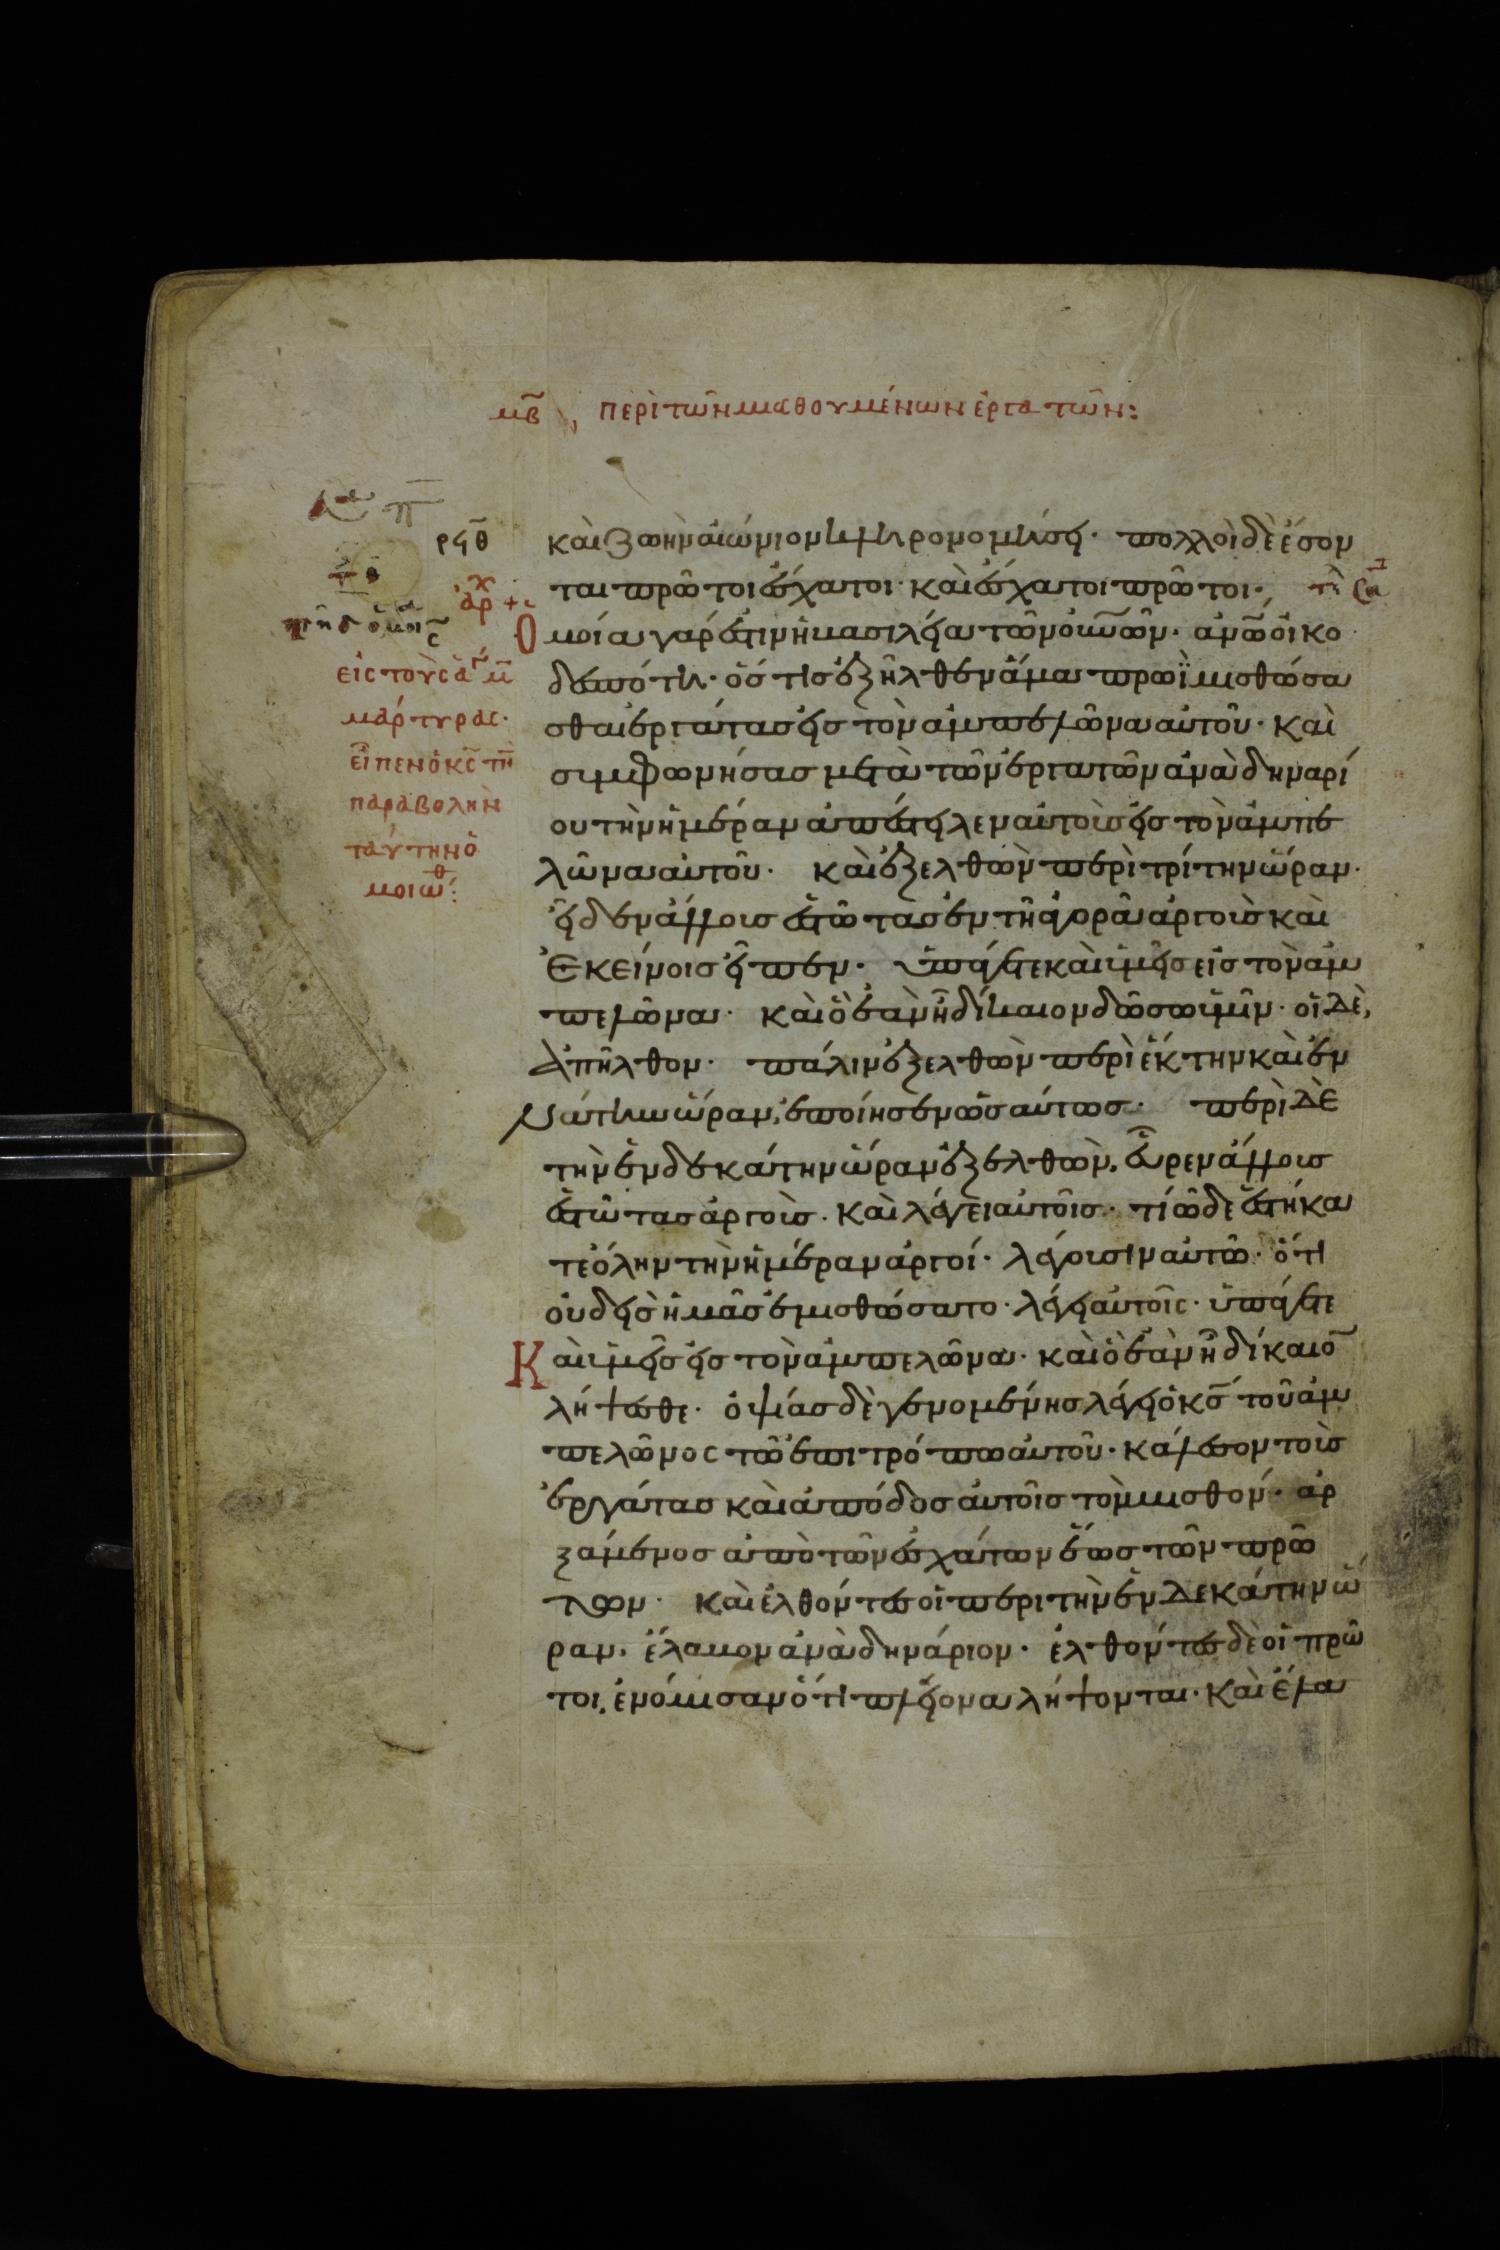 μβ περὶ τῶν μισθουμένων ἐργατῶν:
ρϟθ
καὶ ζωὴν αἰώνιον κληρονομήσει· πολλοὶ δὲ ἔσον
ται πρῶτοι ἔσχατοι· καὶ ἔσχατοι πρῶτοι·
Ὁμοία γάρ ἐστιν ἡ βασιλεία τῶν οὐνῶν· ἀνῶ οἰκο
δεσπότη· ὅστις ἐξῆλθεν ἅμα πρωῒ μισθώσα
σθαι ἐργάτας εἰς τὸν ἀμπελῶνα αὐτοῦ· καὶ
συμφωνήσας μετὰ τῶν ἐργατῶν ἀνὰ δηναρί
ου τὴν ἡμέραν ἀπέστειλεν αὐτοὺς εἰς τὸν ἀμπε
λῶνα αὐτοῦ· καὶ ἐξελθὼν περὶ τρίτην ὥραν·
εἶδεν ἄλλους ἑστῶτας ἐν τῇ ἀγορᾷ ἀργοὺς καὶ
ἐκείνοις εἶπεν· ὑπάγετε καὶ ὑμεῖς εἰς τὸν ἀμ
πελῶνα· καὶ ὃ ἐὰν ᾖ δίκαιον δώσω ὑμῖν· οἱ δὲ,
ἀπῆλθον· πάλιν ἐξελθὼν περὶ ἕκτην καὶ ἐν
νάτην ὥραν, ἐποίησεν ὡσαύτως· περὶ δὲ
τὴν ἑνδεκάτην ὥραν ἐξελθὼν, εὗρεν ἄλλους
ἑστῶτας ἀργοὺς· καὶ λέγει αὐτοῖς· τί ὧδε ἑστήκα
τε ὅλην τὴν ἡμέραν ἀργοί· λέγουσιν αὐτῷ· ὅτι
οὐδεὶς ἡμᾶς ἐμισθώσατο· λέγει αὐτοῖς· ὑπάγετε
Καὶ ὑμεῖς εἰς τὸν ἀμπελῶνα· καὶ ὃ ἐὰν ᾖ δίκαιο̄
λήψεσθε· ὀψίας δὲ γενομένης λέγει ὁ κς τοῦ ἀμ
πελῶνος τῷ ἐπιτρόπω αὐτοῦ· κάλεσον τοὺς
ἐργάτας καὶ ἀπόδος αὐτοῖς τὸν μισθόν· ἀρ
ξάμενος ἀπὸ τῶν ἐσχάτων ἕως τῶν πρώ
των· καὶ ἐλθόντες οἱ περι τὴν ἑνδεκάτην ὥ
ραν, ἔλαβον ἀνὰ δηνάριον· ἐλθόντες δὲ οἱ πρῶ
τοι, ἐνόμισαν ὅτι πλείονα λήψονται· καὶ ἔλα
ἀρχ
εἰς τοὺς ἁγ μ
μάρτυρας·
εἶπεν ὁ κς τὴν
παραβολὴν
ταύτην ὁ
μοιώθ: